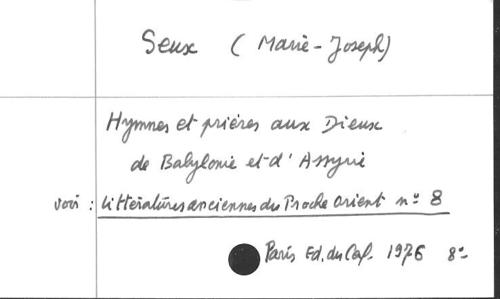 Seux (Marie-Joseph)
Hymnes et prières aux Dieux
de Babylonie et d'Assyrie
voir : Littératures anciennes du Proche Orient n° 8
Paris Ed. du Cerf. 1976 8°